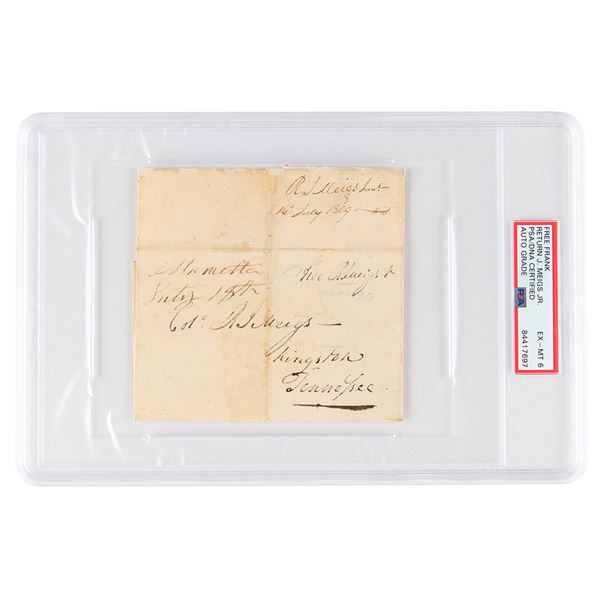 R J Meigs Junr
16th July 1809
Marietta
July 18th
Free R Meigs Jr
Colo. R J Meigs
Kingston
Tennessee.
FREE FRANK
RETURN J. MEIGS JR.
PSA/DNA CERTIFIED
AUTO GRADE
EX - MT 6
PSA
84417697